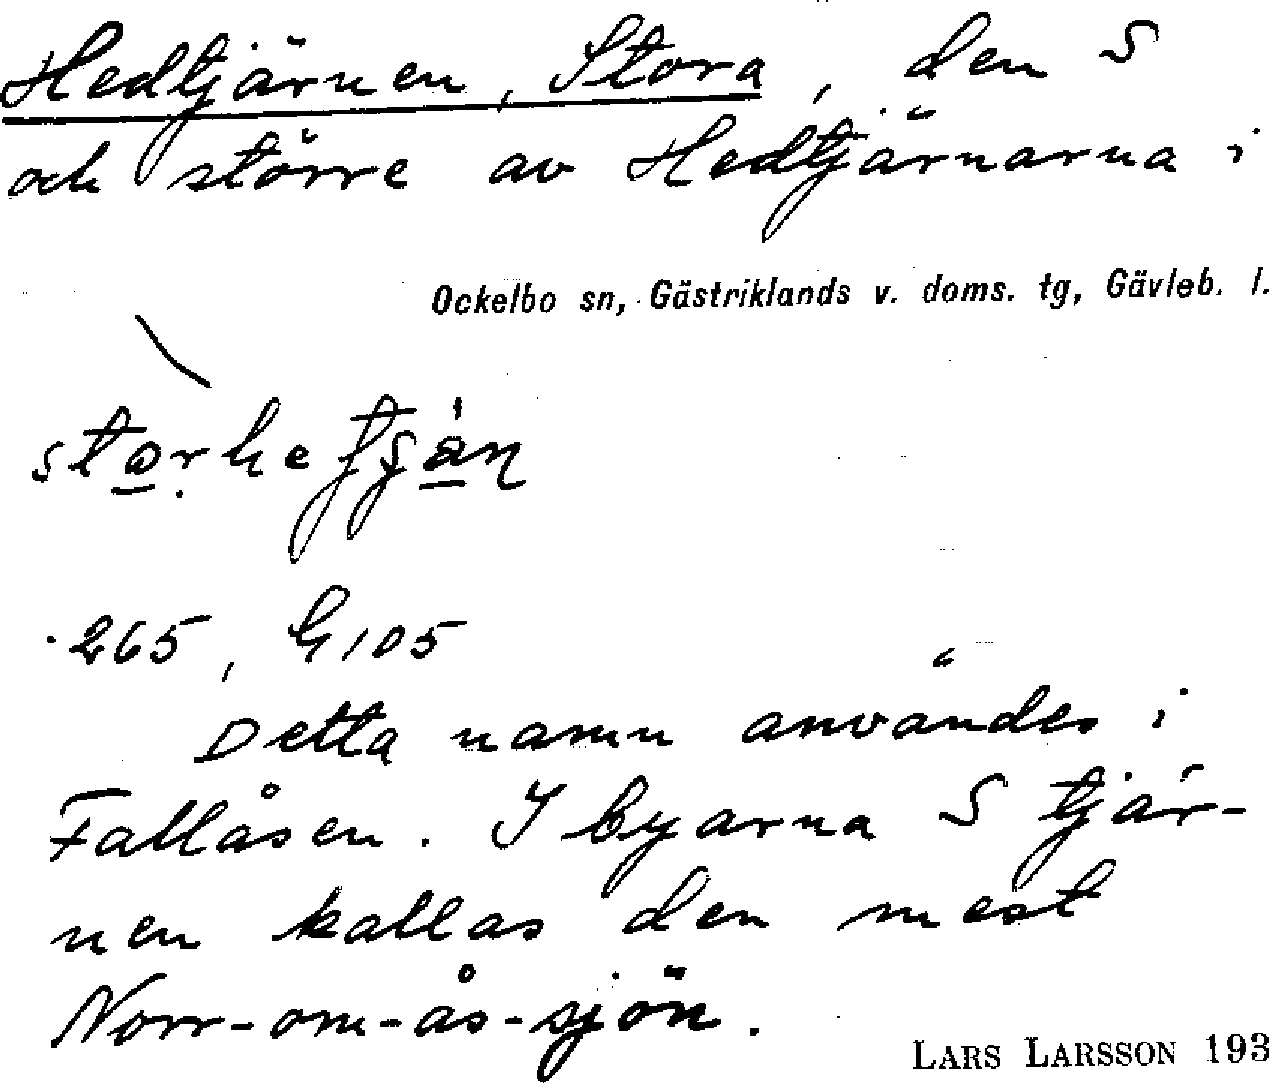 Hedtjärnen, Stora, den S
och större av Hedtjärnarna i
Ockelbo sn, Gästriklands v. doms. tg, Gävleb. l.
265, G105
Detta namn användes i
Fallåsen. I byarna S tjär-
nen kallas den mest
Norr-om-ås-sjön.
LARS LARSSON 193